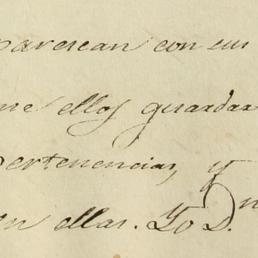 parezcan con sus
ellos guardar
pertenencias, y
en ellas. Yo D.n